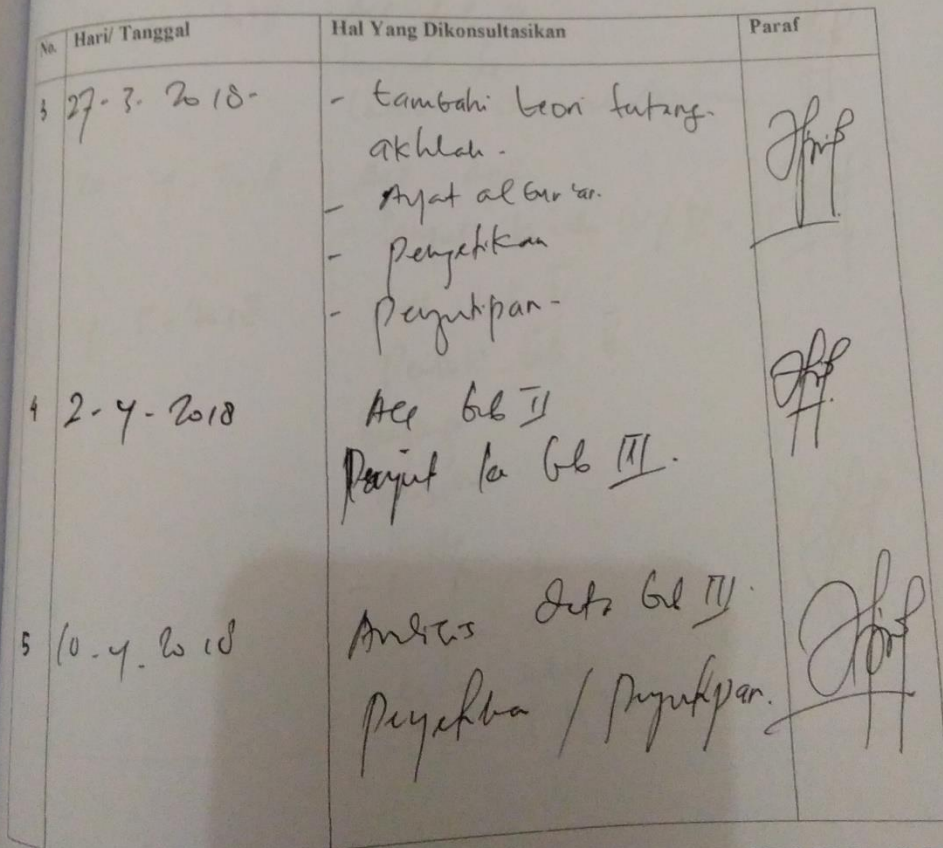 No. Hari/ Tanggal Hal Yang Dikonsultasikan Paraf
3 27-3-2018- - tambahi teori tentang
akhlak.
- Ayat al Qur'an.
- Pengetikan
- pengutipan-
4 2-4-2018 Acc bab II
Lanjut ke bab III.
5 10-4-2018 Analisis data bab III.
Pengetikan / pengutipan.